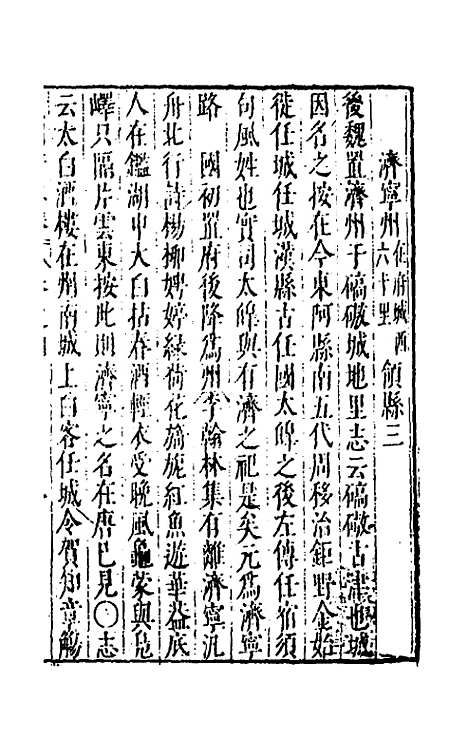 濟寧州在府城西六十里領縣三
後魏置濟州于碻磝城地里志云碻磝古津也城
因名之按在今東阿縣南五代周移治鉅野金始
徙任城任城漢縣古任國太皥之後左傳任宿須
句風姓也實司太皥與有濟之祀是矣元爲濟寧
路 國初置府後降爲州李翰林集有離濟寧汎
舟北行詩楊柳娉婷綠荷花旖旎紅魚遊華益底
人在鑑湖中大白拈春酒輕衣受晩風龜蒙與鳧
嶧只隔片雲東按此則濟寧之名在唐已見〇志
云太白酒樓在州南城上白客任城令賀知章觴